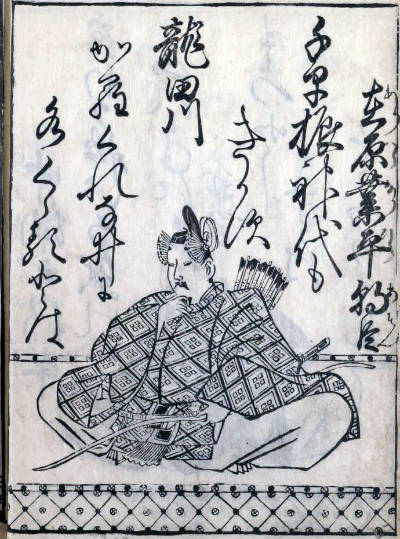 在原業平朝臣
千早振神代も
きかす
龍田川
から くれなゐに
水くゝるとは